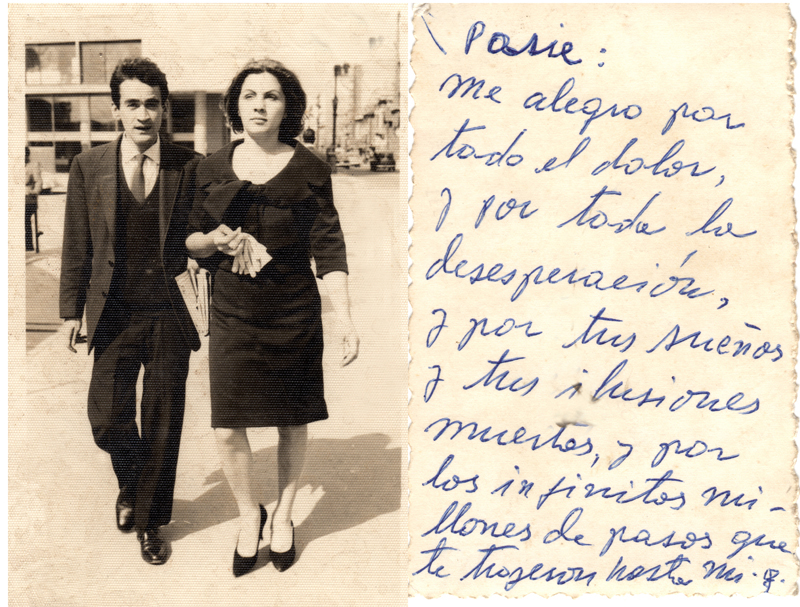 Posie:
Me alegro por
todo el dolor,
y por toda la
desesperación,
y por tus sueños
y tus ilusiones
muertos, y por
los infinitos mi-
llones de pasos que
te trajeron hasta mi.